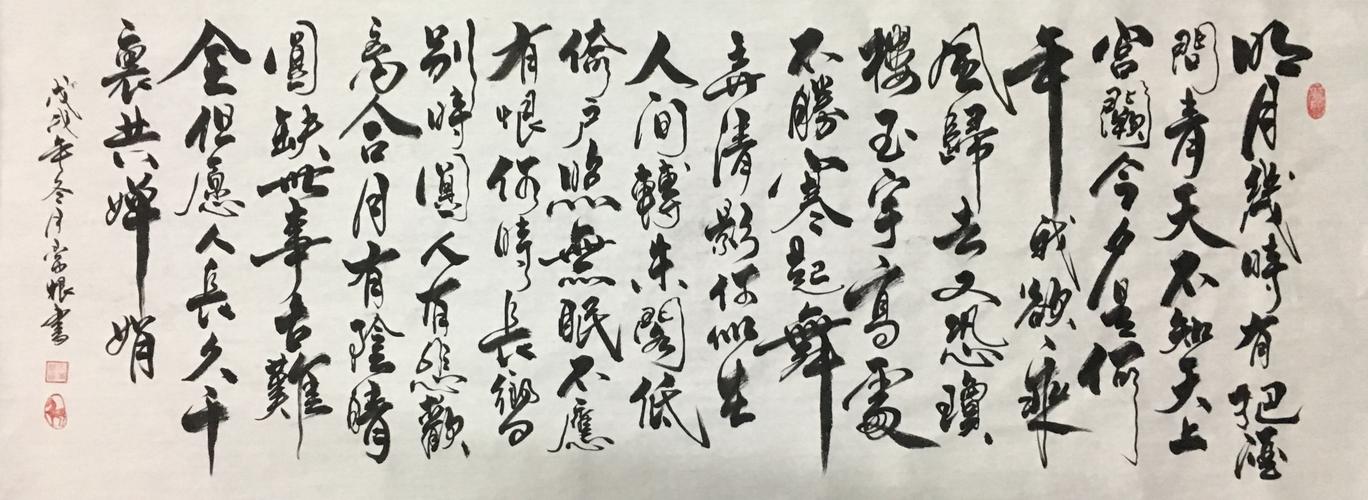 明月幾時有把酒
問青天不知天上
宫闕今夕是何
年我欲乘
風歸去又恐瓊
樓玉宇高處
不勝寒起舞
弄清影何似在
人间轉朱閣低
倚户照無眠不應
有恨何時長嚮
别時圓人有悲歡
离合月有陰晴
圓缺世事古難
全但愿人長久千
裏共嬋娟
戊戌年冬月書